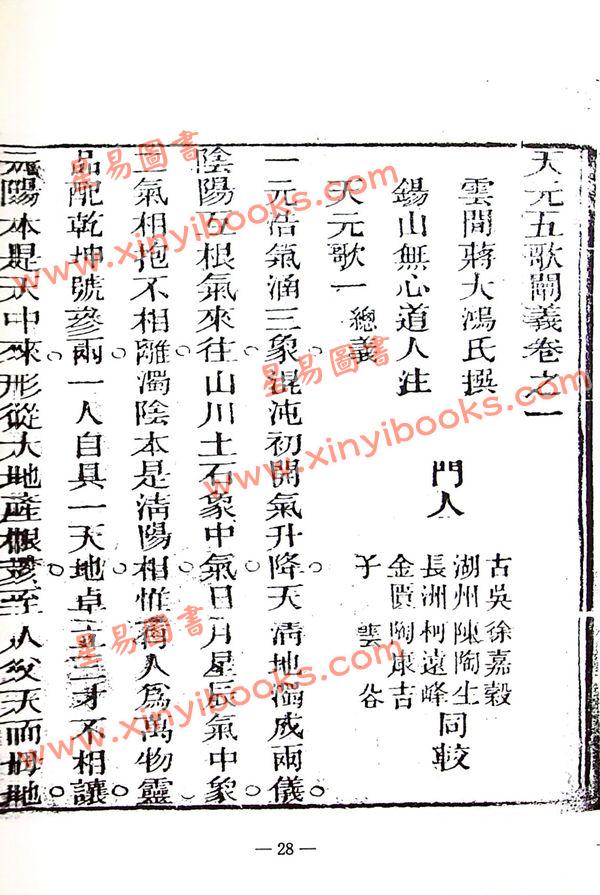 天元五歌闡義卷之一
雲間蔣大鴻氏撰
錫山無心道人注
門人
古吳徐嘉穀
湖州陳陶生
長洲柯遠峰
金匱陶康吉
子雲谷
同較
天元歌一 總義
一元浩氣涵三象混沌初開氣升降天淸地濁成兩儀
陰陽互根氣來往山川土石象中氣日月星辰氣中象
二氣相抱不相離濁陰本是淸陽相惟有人爲萬物靈
品配乾坤號參兩一人自具一天地卓立三才不相讓
元陽本是天中來形從大地產根 至人父天而母地
— 28 —
星易圖書
www.xinyibooks.com
星易圖書
www.xinyibooks.com
星易圖書
www.xinyibooks.com